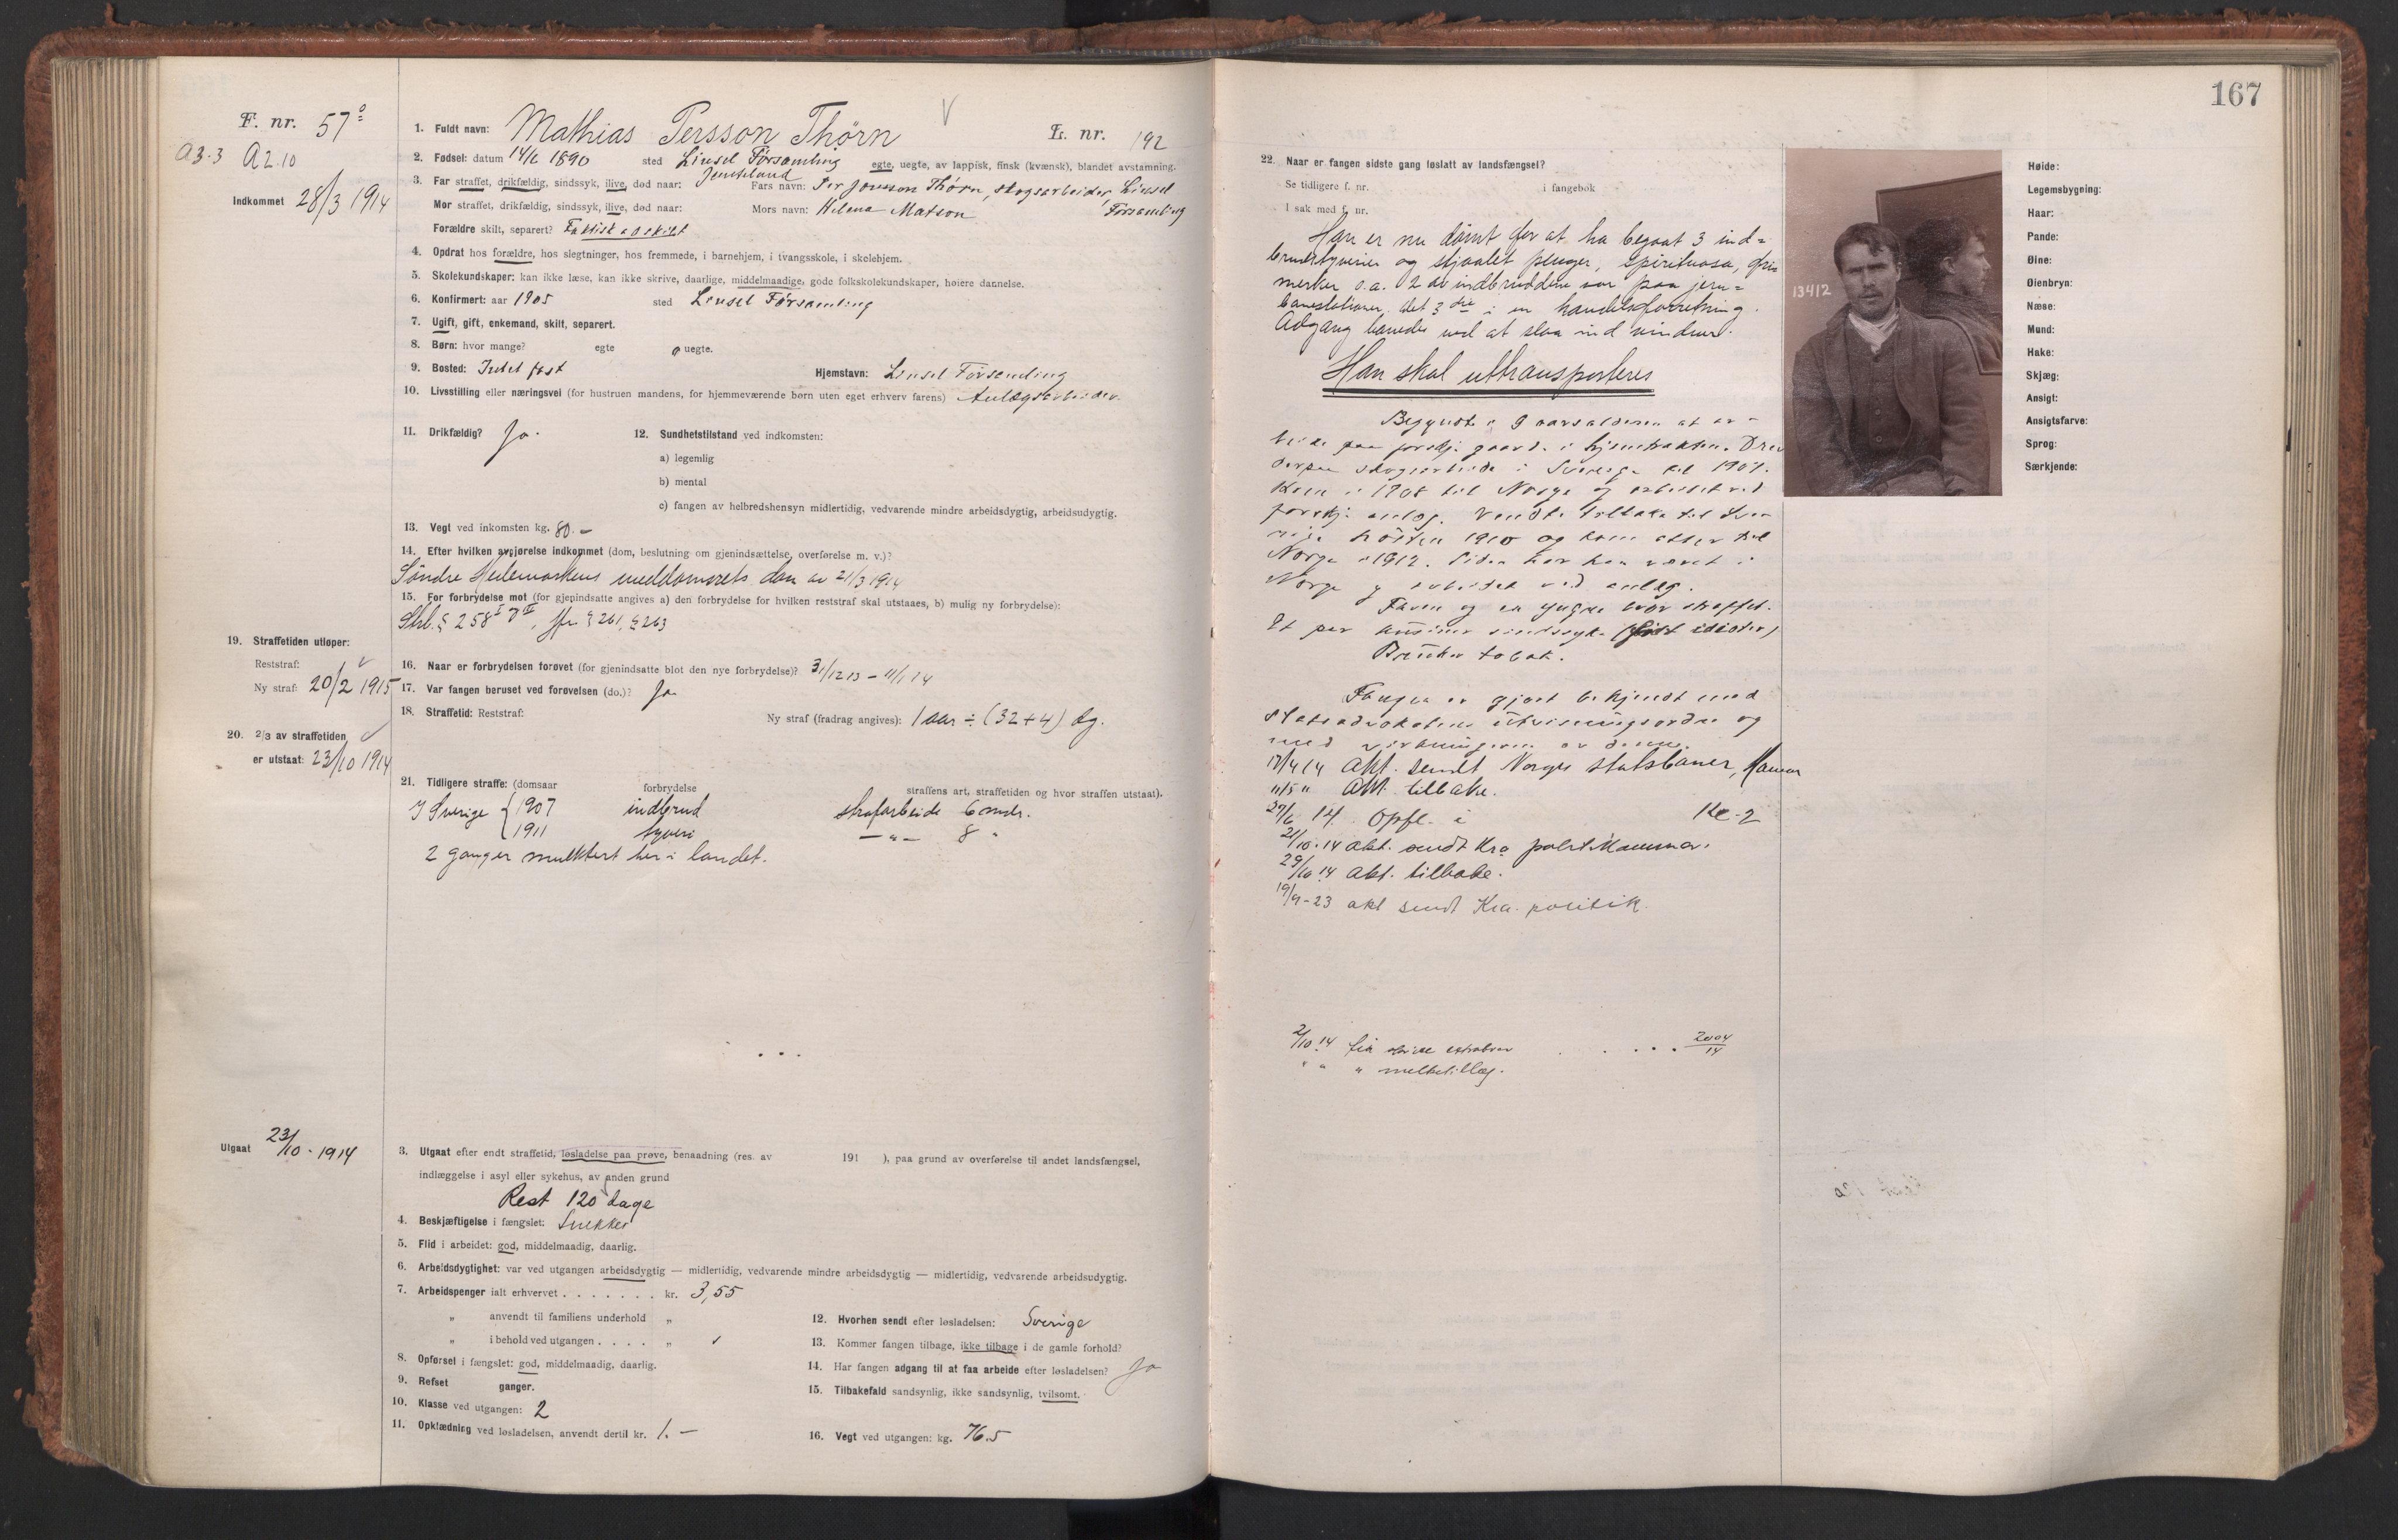 F. nr. 57
a3.3 A2.10
Indkommet 28/3 1914
1. Fuldt navn: Mathias Persson Thørn L. nr. 192
2. Fødsel: datum 14/6 1890 sted Linsel Församling egte, uegte, av lappisk, finsk (kvænsk), blandet avstamning.
Jemteland
3. Far straffet, drikfældig, sindssyk, ilive, død naar: Fars navn: Per Jonsson Thørn, skogsarbeider, Linsel
Församling
Mor straffet, drikfældig, sindssyk, ilive, død naar: Mors navn: Helena Matson
Forældre skilt, separert? Faktisk adskilt
4. Opdrat hos forældre, hos slegtninger, hos fremmede, i barnehjem, i tvangsskole, i skolehjem.
5. Skolekundskaper: kan ikke læse, kan ikke skrive, daarlige, middelmaadige, gode folkskolekundskaper, høiere dannelse.
6. Konfirmert: aar 1905 sted Linsel Församling
7. Ugift, gift, enkemand, skilt, separert.
8. Børn: hvor mange? egte 0 uegte.
9. Bosted: Intet fast Hjemstavn: Linsel Församling
10. Livsstilling eller næringsvei (for hustruen mandens, for hjemmeværende børn uten eget erhverv farens) Anlægsarbeider.
11. Drikfældig? Ja. 12. Sundhetstilstand ved indkomsten:
a) legemlig
b) mental
c) fangen av helbredshensyn midlertidig, vedvarende mindre arbeidsdygtig, arbeidsudygtig.
13. Vegt ved inkomsten kg. 80.-
14. Efter hvilken avgjørelse indkommet (dom, beslutning om gjenindsættelse, overførelse m. v.)?
Søndre Hedemarkens meddomsrets dom av 21/3 1914
15. For forbrydelse mot (for gjenindsatte angives a) den forbrydelse for hvilken reststraf skal utstaaes, b) mulig ny forbrydelse):
Strl. § 258 I & II, jfr. § 261, § 263
16. Naar er forbrydelsen forøvet (for gjenindsatte blot den nye forbrydelse)? 31/12 13 - 11/1 14
17. Var fangen beruset ved forøvelsen (do.)? Ja
18. Straffetid: Reststraf: Ny straf (fradrag angives): 1 aar ÷ (32+4) dg.
19. Straffetiden utløper:
Reststraf:
Ny straf: 20/2 1915
20. 2/3 av straffetiden
er utstaat: 23/10 1914
21. Tidligere straffe: (domsaar forbrydelse straffens art, straffetiden og hvor straffen utstaat).
I Sverige { 1907 indbrud strafarbeide 6 mdr.
1911 tyveri —"— 8 "
2 ganger mulktert her i landet.
Utgaat 23/10 - 1914
3. Utgaat efter endt straffetid, løsladelse paa prøve, benaadning (res. av 191 ), paa grund av overførelse til andet landsfængsel,
indlæggelse i asyl eller sykehus, av anden grund
Rest 120 dage
4. Beskjæftigelse i fængslet: Snekker
5. Flid i arbeidet: god, middelmaadig, daarlig.
6. Arbeidsdygtighet: var ved utgangen arbeidsdygtig — midlertidig, vedvarende mindre arbeidsdygtig — midlertidig, vedvarende arbeidsudygtig.
7. Arbeidspenger ialt erhvervet . . . . . . . kr. 3,55
" anvendt til familiens underhold "
" i behold ved utgangen . . . . "
8. Opførsel i fængslet: god, middelmaadig, daarlig.
9. Refset ganger.
10. Klasse ved utgangen: 2
11. Opklædning ved løsladelsen, anvendt dertil kr. 1.-
12. Hvorhen sendt efter løsladelsen: Sverige
13. Kommer fangen tilbage, ikke tilbage i de gamle forhold?
14. Har fangen adgang til at faa arbeide efter løsladelsen? Ja
15. Tilbakefald sandsynlig, ikke sandsynlig, tvilsomt.
16. Vegt ved utgangen: kg. 76.5
167
22. Naar er fangen sidste gang løslatt av landsfængsel?
Se tidligere f. nr. i fangebok
I sak med f. nr.
Han er nu dømt for at ha begaat 3 ind-
brudstyverier og stjaalet penger, spirituosa, fri-
merker o.a. 2 av indbruddene var paa jern-
banestationer, det 3die i en handelsforretning.
Adgang banedes ved at slaa ind vinduer.
Han skal uttransporteres
Begyndte i 9 aarsalderen at ar-
beide paa forskj. gaarde i hjemtrakten. Drev
derpaa skogsarbeide i Sverige til 1907.
Kom i 1908 til Norge og arbeidet ved
forskj. anlæg. Vendte tilbake til Sve-
rige høsten 1910 og kom atter til
Norge i 1912. Siden har han været i
Norge og arbeidet ved anlæg.
Faren og en yngre bror straffet.
Et par kusiner sindssyke (født idioter)
Bruker tobak.
Fangen er gjort bekjendt med
statsadvokatens utvisningsordre og
med virkningerne av denne.
17/4 14 Akt. sendt Norges statsbaner, Hamar
11/5 " Akt. tilbake.
27/6 14. Opfl. i Kl. 2
21/10.14 akt. sendt Kra politikammer.
29/10 14 akt. tilbake.
19/9-23 akt sendt Kra. politik.
2/10 14 . . . . . 2004/14
" " " melketillæg.
13412
Høide:
Legemsbygning:
Haar:
Pande:
Øine:
Øienbryn:
Næse:
Mund:
Hake:
Skjæg:
Ansigt:
Ansigtsfarve:
Sprog:
Særkjende: